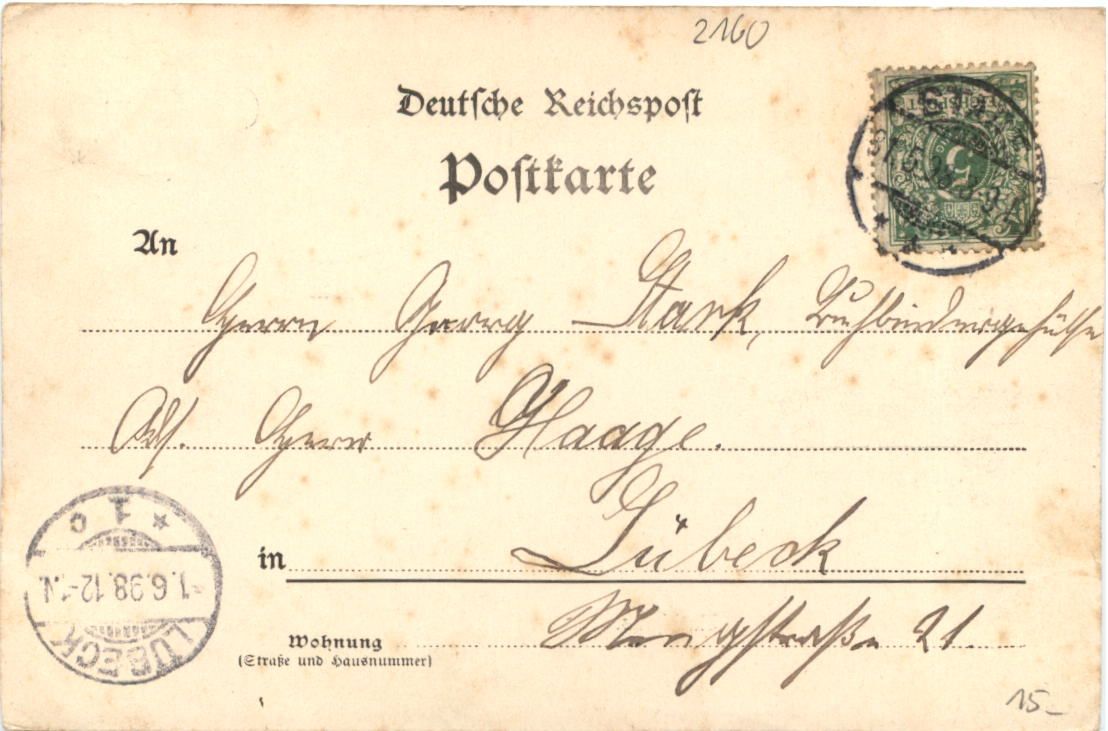 2160
Deutsche Reichspost
Postkarte
An
Herrn Georg Stark, Buchbindergehülfe
Adr. Herrn Haage.
in Lübeck
Wohnung Mengstraße 21.
(Straße und Hausnummer)
LÜBECK
1.6.98.12-1N
* 1 c
REICHSPOST
5
15-